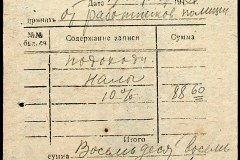 Дата
принять от работников полиции
№№ Содержание записи Сумма
бух. сч.
подоходн.
налог
10% 88 60
Итого
Сумма Восемьдесят восемь